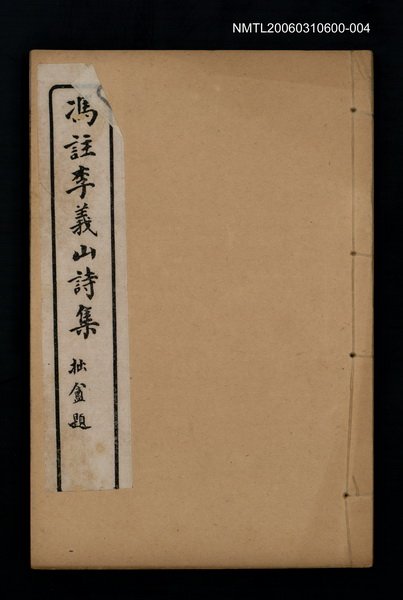 NMTL20060310600-004
馮註李義山詩集
拙盦題